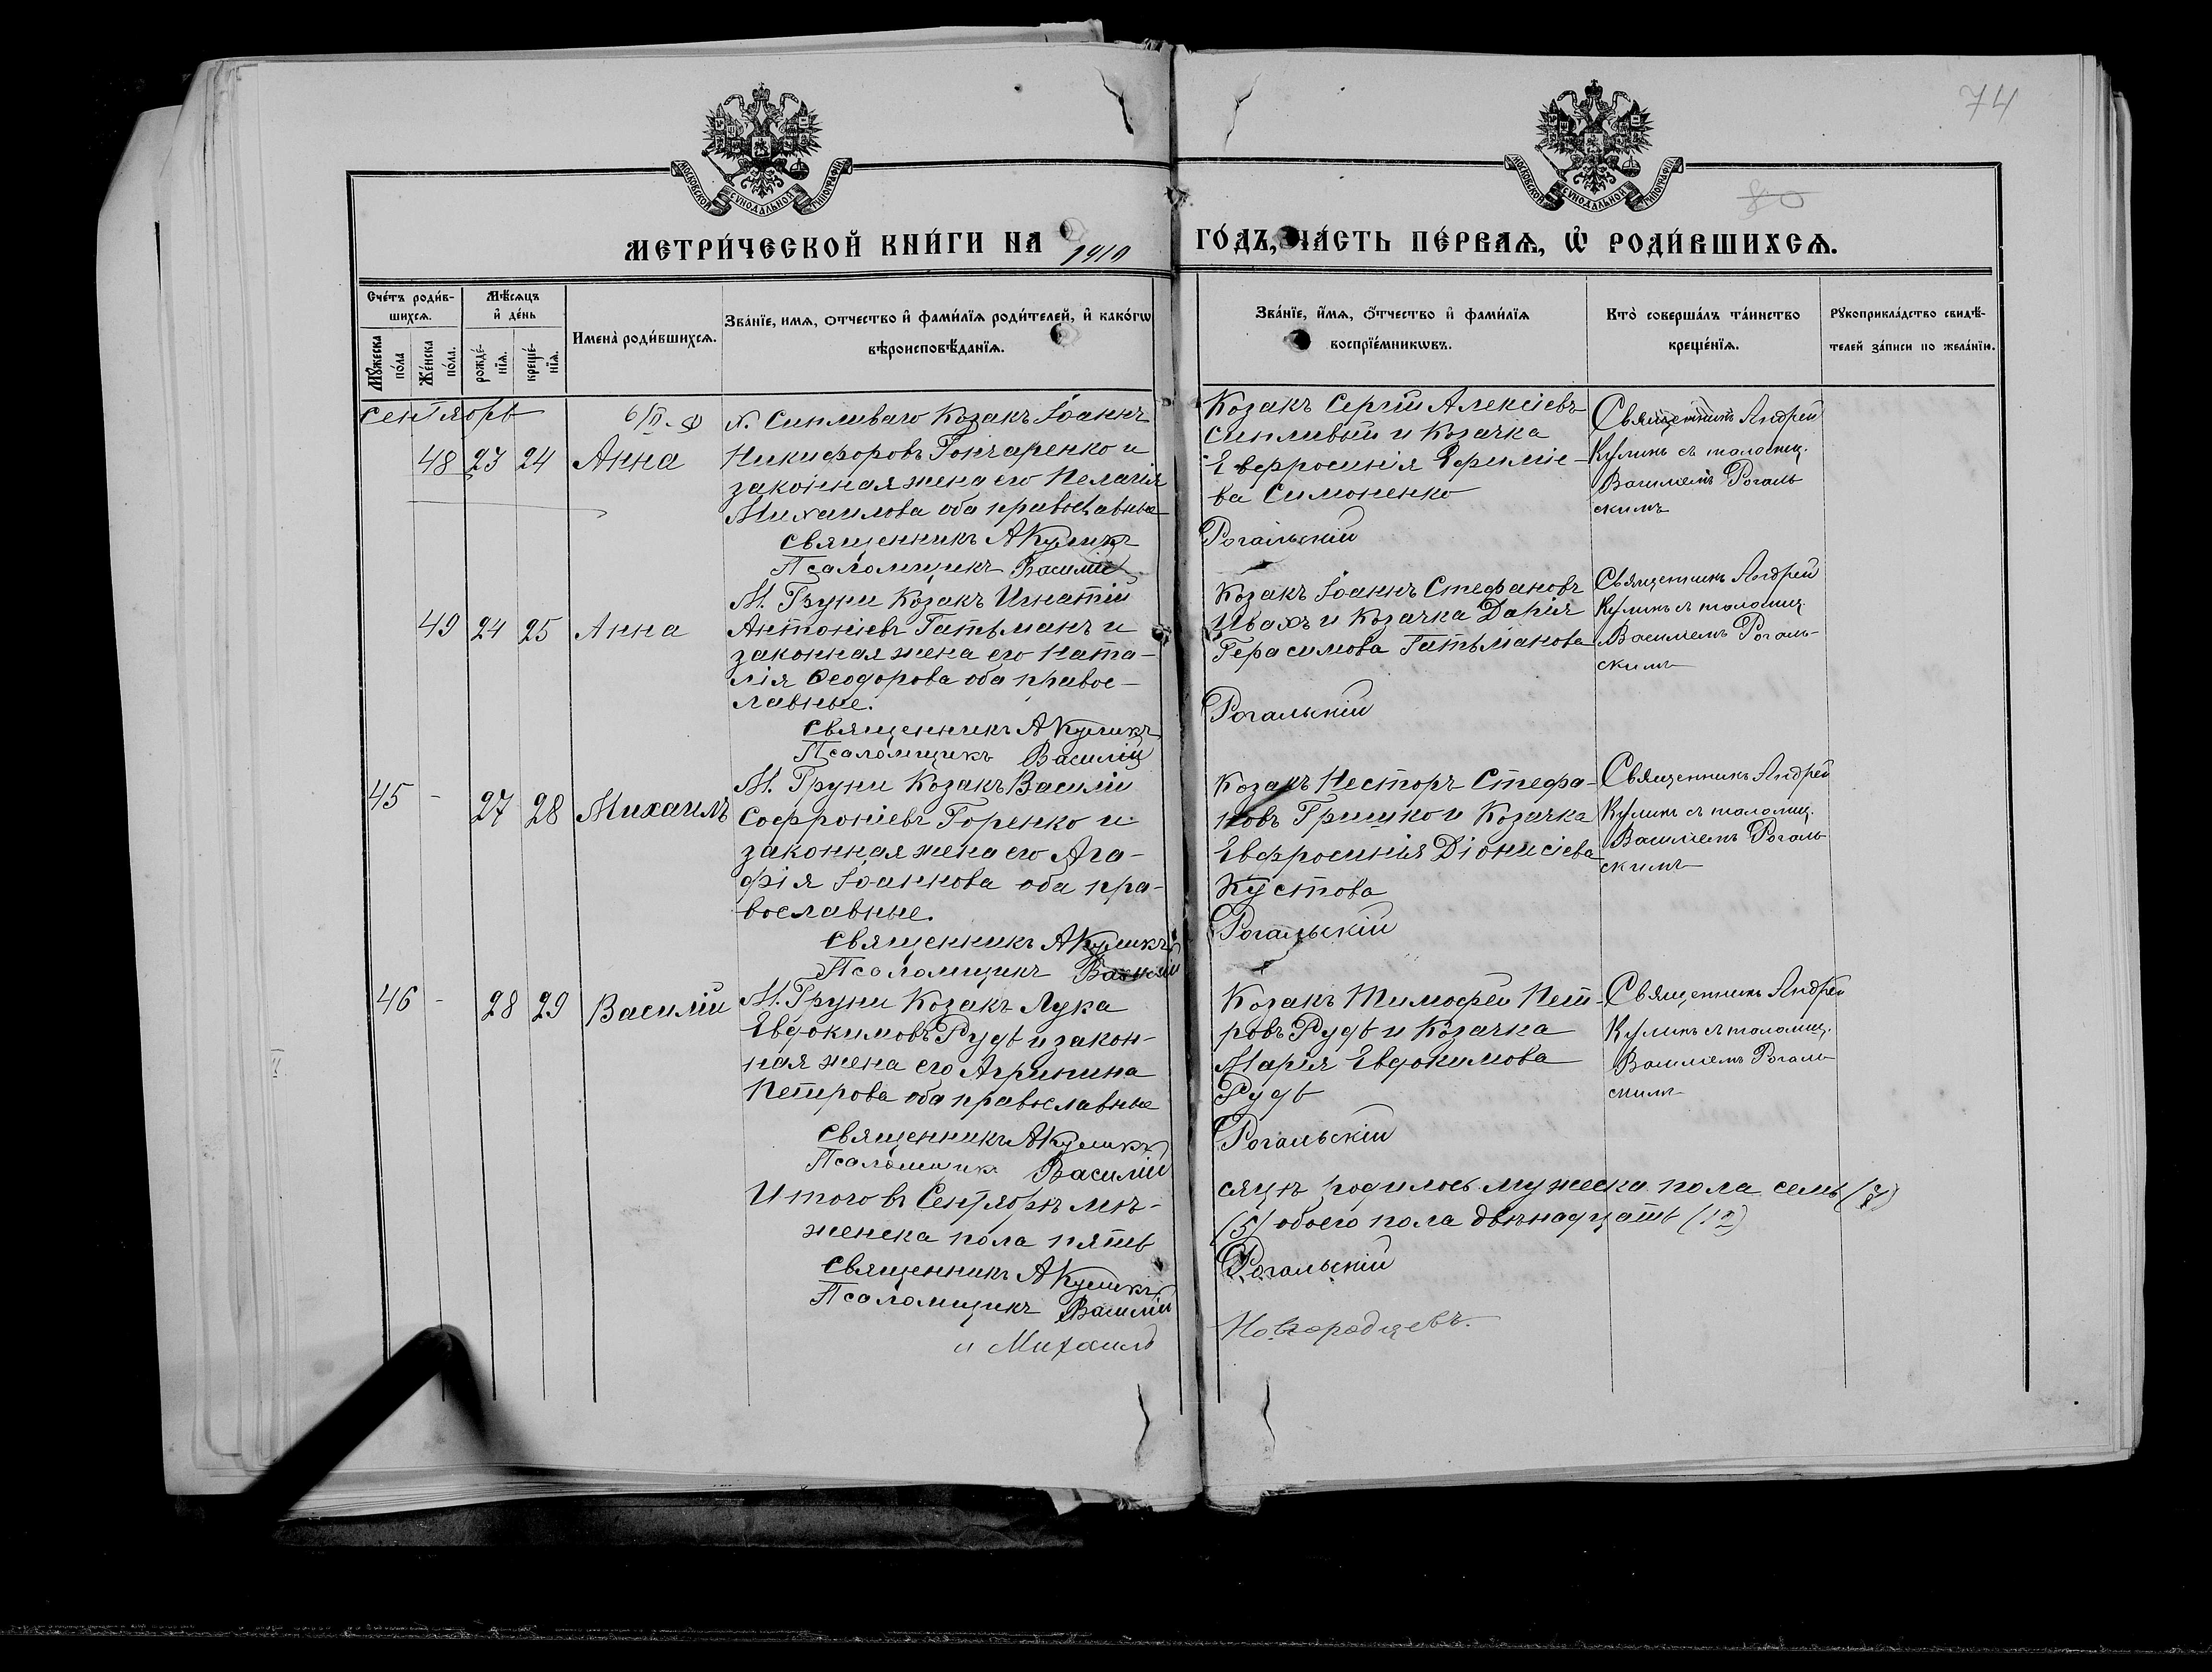 74
80
МОСКОВСКОЙ СУНОДАЛЬНОЙ ТИПОГРАФІИ
МОСКОВСКОЙ СУНОДАЛЬНОЙ ТИПОГРАФІИ
МЕТРИ́ЧЕСКОЙ КНИ́ГИ НА 1910 ГО́ДЪ, ЧА́СТЬ ПЕ́РВАѦ, Ѡ҆ РОДИ́ВШИХСѦ.
Сче́тъ роди́в-
шихсѧ.
Мꙋ́жеска по́ла
Же́нска по́ла.
Мѣ́сѧцъ
и҆ де́нь
рожде́-
нїѧ.
креще́-
нїѧ.
Имена̀ роди́вшихсѧ.
Зва́нїе, имѧ, ѻтчество и҆ фами́лїѧ роди́телей, и҆ како́гѡ
вѣроисповѣ́данїѧ.
Зва́нїе, и҆мѧ, ѻ҆тчество и҆ фами́лїѧ
воспрїе́мникѡвъ.
Кто̀ соверша́лъ та́инство
креще́нїѧ.
Рꙋкоприкла́дство свидѣ́-
телей за́писи по жела́нїю.
Сентябрь
48 23 24 Анна
х. Сипливаго Козакъ Іоаннъ
Никифоровъ Гончаренко и
законная жена его Пелагія
Михаилова оба православные
Священникъ А Куликъ
Псаломщикъ Василій
Козакъ Сергій Алексіевъ
Сипливый и Козачка
Евфросинія Ефиміе-
ва Симоненко
Рогальскій
Священникъ Андрей
Куликъ съ псаломщ.
Василіемъ Рогаль
скимъ
49 24 25 Анна
М. Груни Козакъ Игнатій
Антоніевъ Гатьманъ и
законная жена его Ната-
лія Ѳеодорова оба правос-
лавные.
Священникъ А Куликъ
Псаломщикъ Василій
Козакъ Іоаннъ Стефановъ
Ивахъ и Козачка Дарія
Герасимова Гатьманова
Рогальскій
Священникъ Андрей
Куликъ съ псаломщ.
Василіемъ Рогаль-
скимъ
45 - 27 28 Михаилъ
М. Груни Козакъ Василій
Софроніевъ Горенко и
законная жена его Ага-
фія Іоаннова оба пра-
вославные.
Священникъ А Куликъ
Псаломщикъ Василій
Козакъ Несторъ Стефа-
новъ Гришко и Козачка
Евфросинія Діонисіева
Кустова
Рогальскій
Священникъ Андрей
Куликъ съ псаломщ.
Василіемъ Рогаль
скимъ
46 - 28 29 Василій
М. Груни Козакъ Лука
Евдокимовъ Рудь и закон-
ная жена его Агрипина
Петрова оба православные
Священникъ А Куликъ
Псаломщикъ Василій
Козакъ Тимофей Пет-
ровъ Рудь и Козачка
Марія Евдокимова
Рудь
Рогальскій
Священникъ Андрей
Куликъ съ псаломщ.
Василіемъ Рогаль
скимъ
Итого въ Сентябрѣ мѣ-
сяцѣ родилось мужеска пола семь (7)
женска пола пять
(5) обоего пола двѣнадцать (12)
Священникъ А Куликъ
Псаломщикъ Василій
Рогальскій
и Михаилъ
Новгородцевъ.